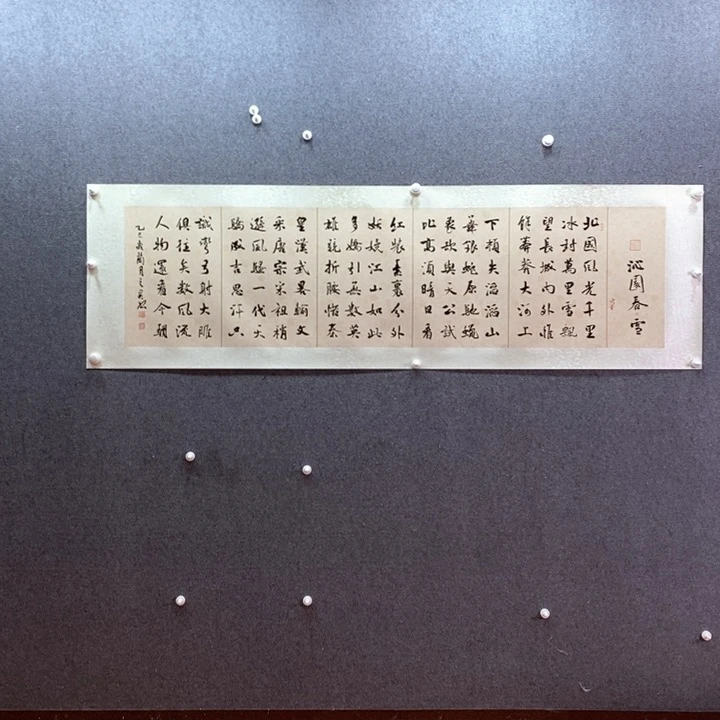 沁園春雪
北國風光千里
冰封萬里雪飄
望長城內外惟
餘莽莽大河上
下頓失滔滔山
舞銀蛇原馳蠟
象欲與天公試
比高須晴日看
紅裝素裹分外
妖嬈江山如此
多嬌引無數英
雄競折腰惜秦
皇漢武畧輸文
采唐宗宋祖稍
遜風騷一代天
驕成吉思汗只
識彎弓射大雕
俱往矣數風流
人物還看今朝